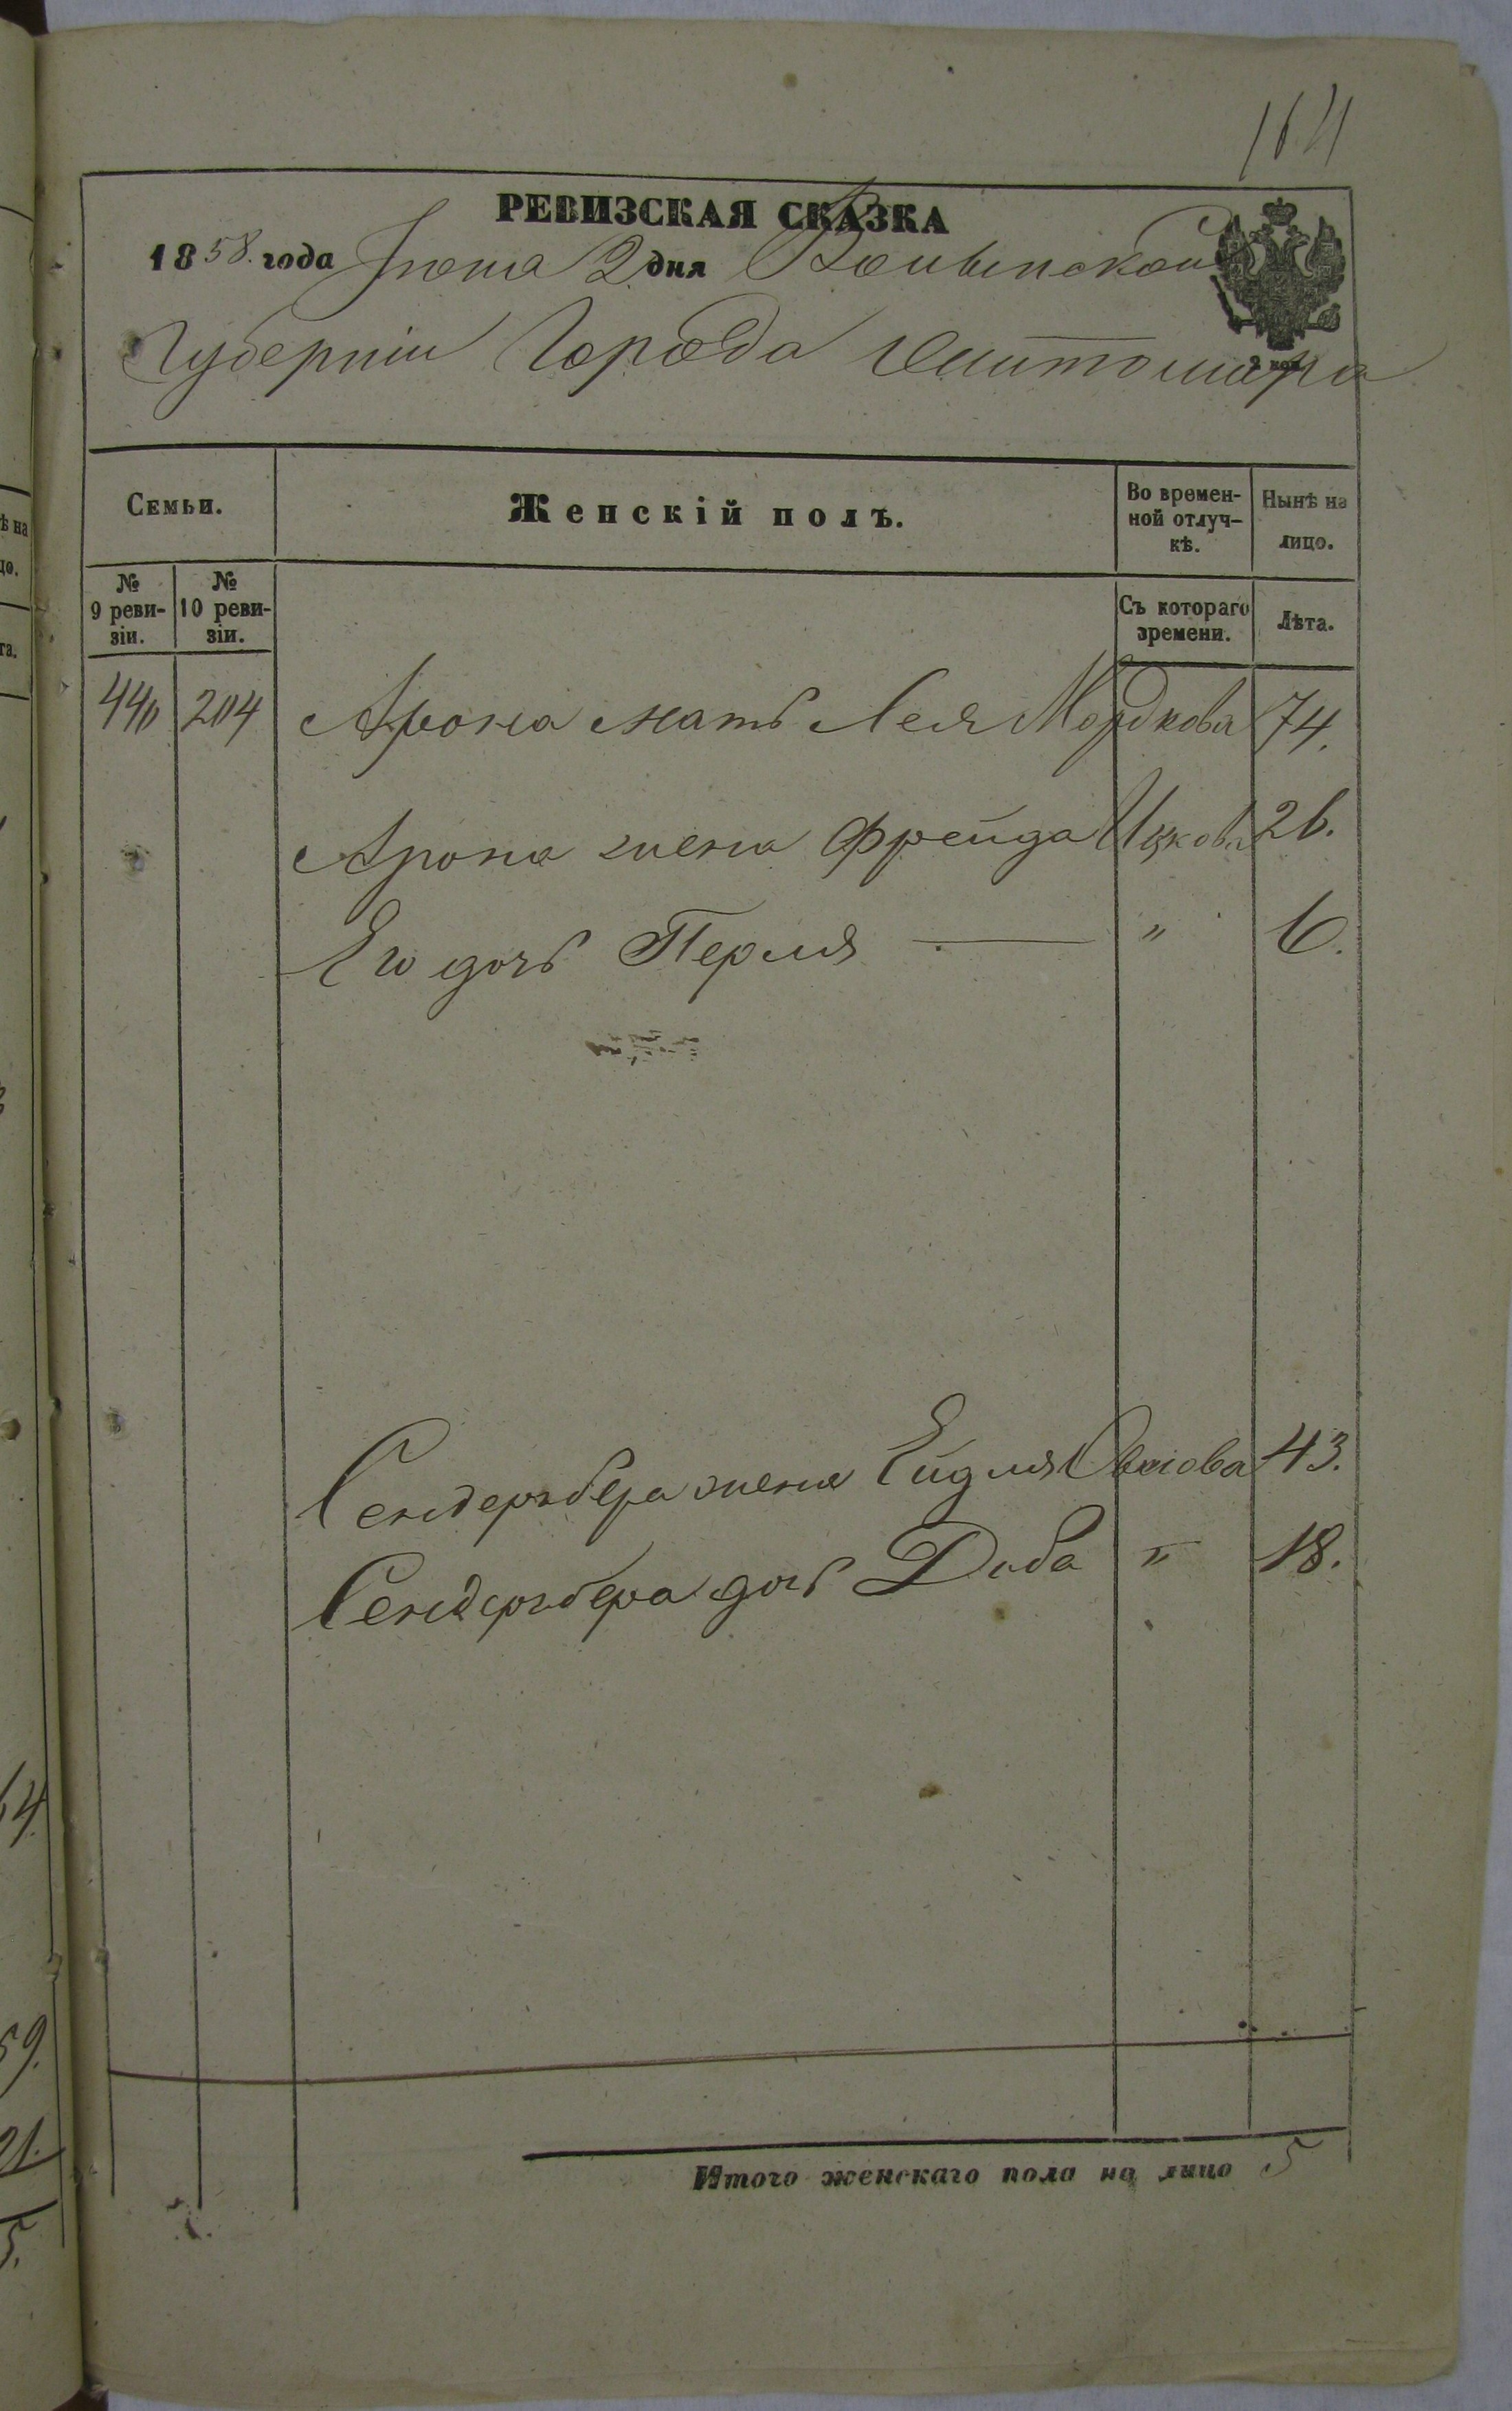 164
РЕВИЗСКАЯ СКАЗКА
1858. года Іюня 2 дня Волынской
Губерніи Города Житомира
Семьи.
Женскій полъ.
Во времен-
ной отлуч-
кѣ.
Нынѣ на
лицо.
№
9 реви-
зіи.
№
10 реви-
зіи.
Съ котораго
времени.
Лѣта.
440 204 Арона мать Лея Мордкова 74.
Арона жена Фрейда Ицкова 26.
Его дочь Перля — " 6.
Сендерабера жена Ейдля 43.
Сендерабера дочь Доба " 18.
Итого женскаго пола на лицо 5